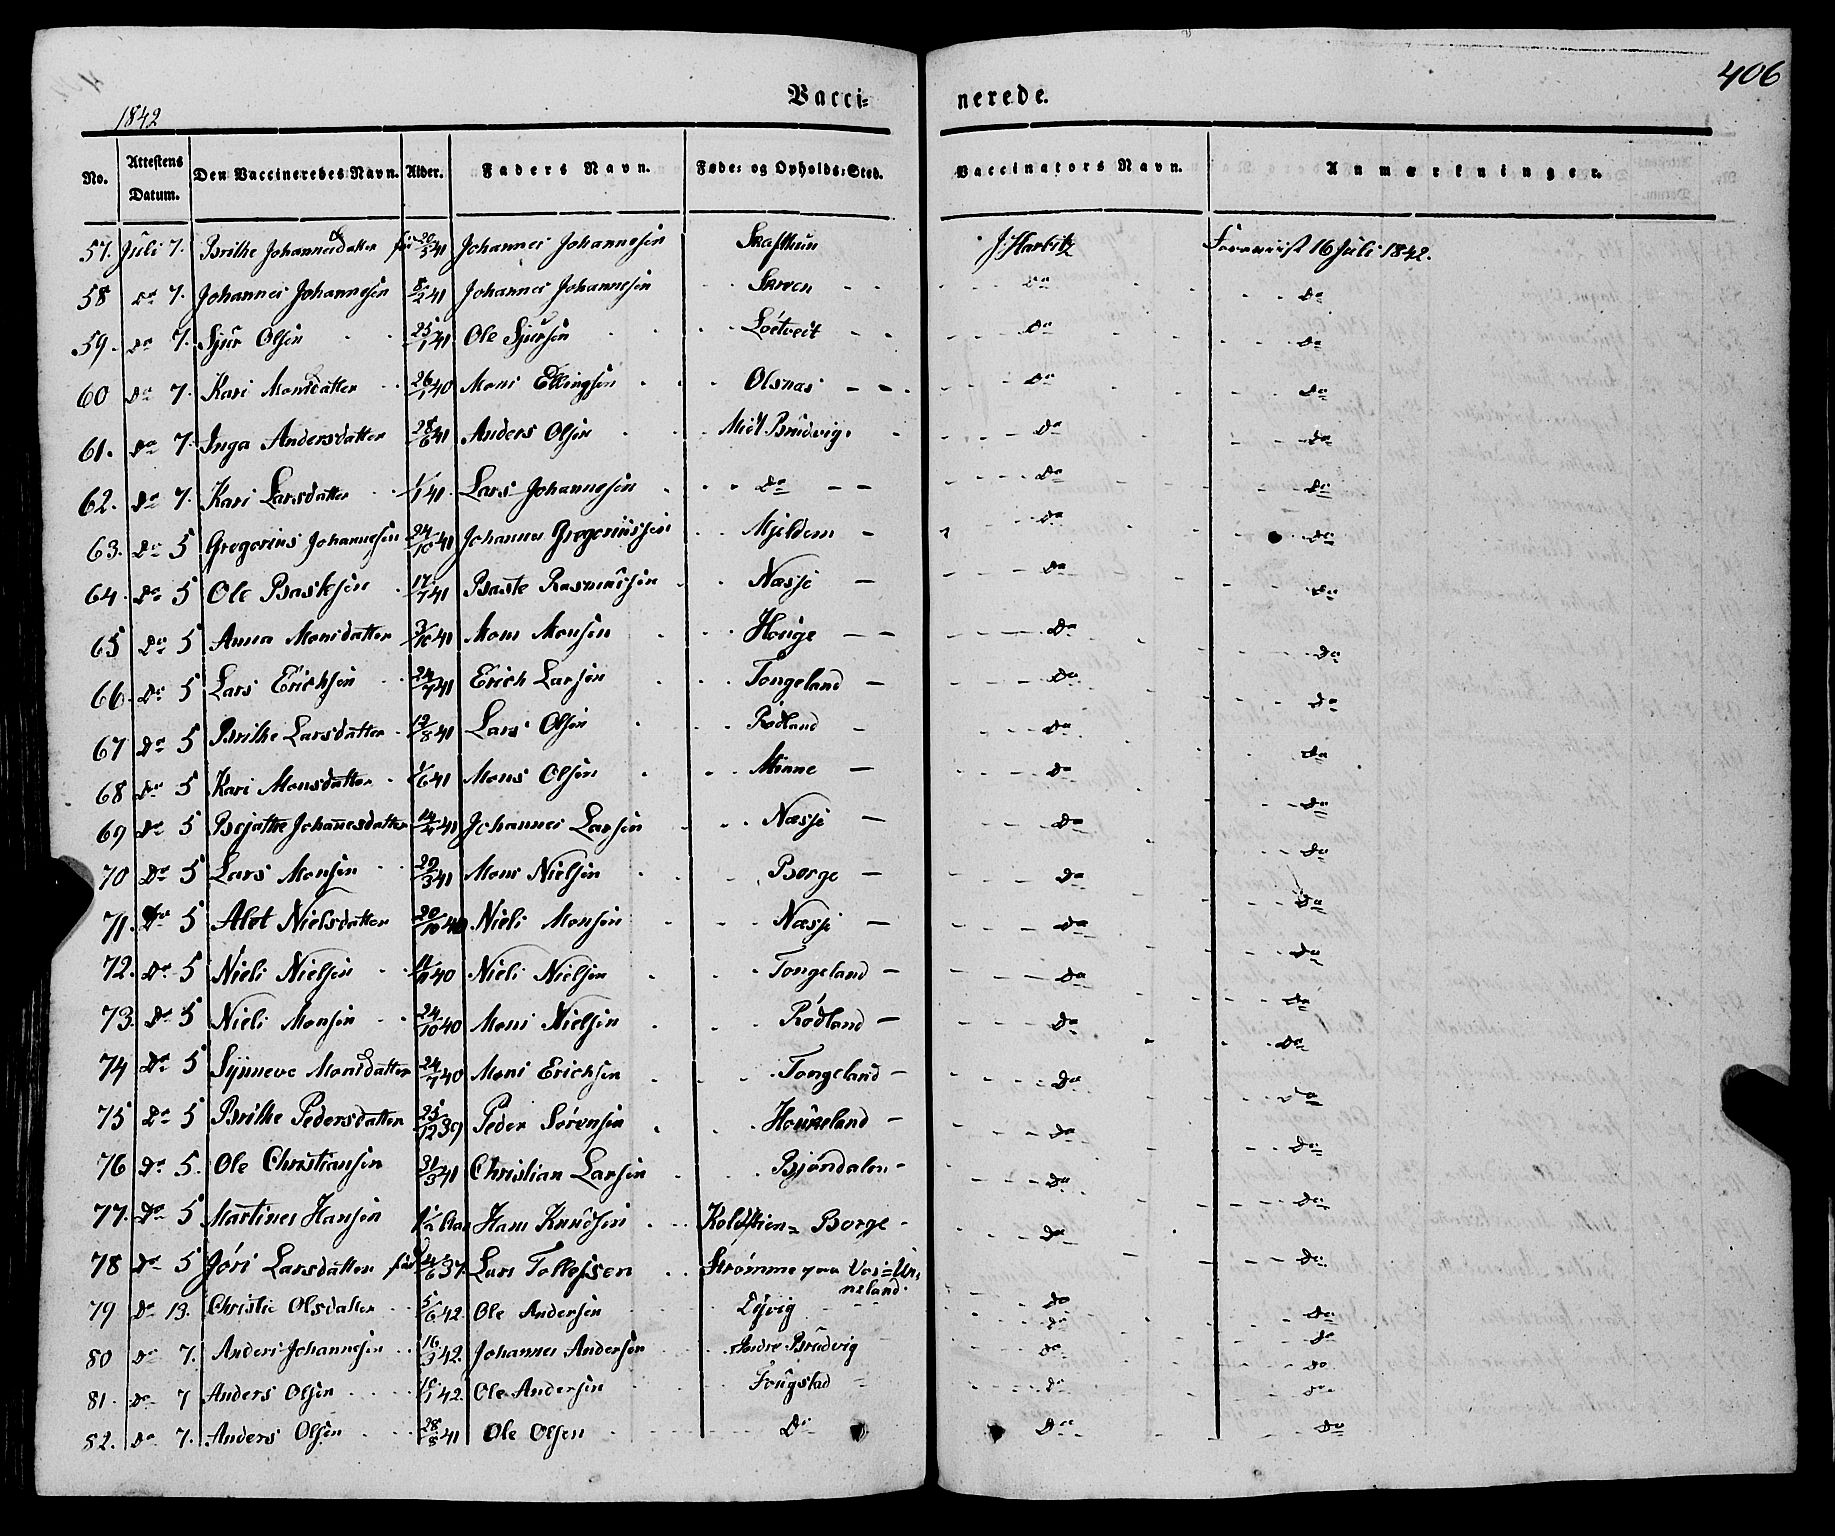 406
Vacci= nerede.
1842
No. Attestens Datum. Den Vaccineredes Navn. Alder. Faders Navn. Føde- og Opholds-Sted. Vaccinators Navn. Anmærkninger.
57. Juli 7. Brithe Johannesdatter 41 Johannes Johannesen J. Harbitz Foreviist 16 Juli 1842.
58 Do 7. Johannes Johannesen 8/2 41 Johannes Johannesen Skreen Do Do
59. Do 7. Sjur Olsen 25/1 41 Ole Sjursen Løtveit Do Do
60 Do 7. Kari Monsdatter 26/1 40 Mons Ellingsen Olsnas Do Do
61. Do 7. Inga Andersdatter 28/6 41 Anders Olsen Midt Brudvig Do Do
62. Do 7. Kari Larsdatter 1/1 41 Lars Johannesen Do Do Do
63. Do 5 Gregorius Johannesen 24/10 41 Johannes Gregoriussen Mjeldem Do Do
64. Do 5 Ole Bastesen 17/7 41 Baste Rasmussen Næsse Do Do
65 Do 5 Anna Monsdatter 3/10 41 Mons Monsen Houge Do Do
66. Do 5 Lars Erichsen 24/7 41 Erich Larsen Tongeland Do Do
67 Do 5 Brithe Larsdatter 12/8 41 Lars Olsen Rødland Do Do
68 Do 5 Kari Monsdatter 1/6 41 Mons Olsen Minne Do Do
69 Do 5 Johannesdatter 14/4 41 Johannes Larsen Næsse Do Do
70 Do 5 Lars Monsen 29/3 41 Mons Nielsen Borge Do Do
71. Do 5 Alet Nielsdatter 20/10 40 Niels Monsen Næsse Do Do
72. Do 5 Niels Nielsen 40 Niels Nielsen Tongeland Do Do
73. Do 5 Niels Monsen 24/10 40 Mons Nielsen Rødland Do Do
74 Do 5 Synneve Monsdatter 24/7 40 Mons Erichsen Tongeland Do Do
75 Do 5 Brithe Pedersdatter 25/12 39 Peder Sørensen Houkeland Do Do
76 Do 5. Ole Christiansen 31/3 41 Christian Larsen Bjøndalen Do Do
77. Do 5 Martines Hansen Hans Knudsen Borge Do Do
78 Do 5 Jøri Larsdatter 37. Lars Tollefsen Strømme Do Do
79 Do 13. Christie Olsdatter 5/6 42. Ole Andersen Dyvig Do Do
80 Do 7. Anders Johannesen 16/3 42. Johannes Andersen Indre Brudvig Do Do
81. Do 7 Anders Olsen 42. Ole Andersen Fougstad Do Do
82. Do 7. Anders Olsen 28/8 41 Ole Olsen Do Do Do